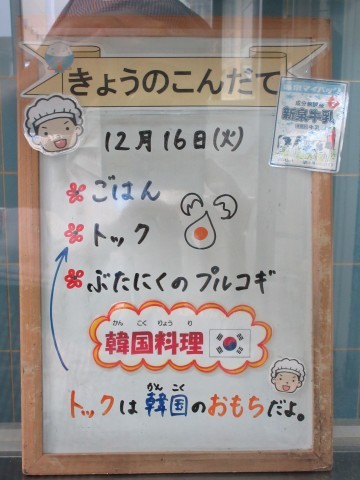 きょうのこんだて
成分無調整
新泉牛乳
12月16日(火)
ごはん
トック
ぶたにくのプルコギ
かんこくりょうり
韓国料理
かんこく
トックは韓国のおもちだよ。